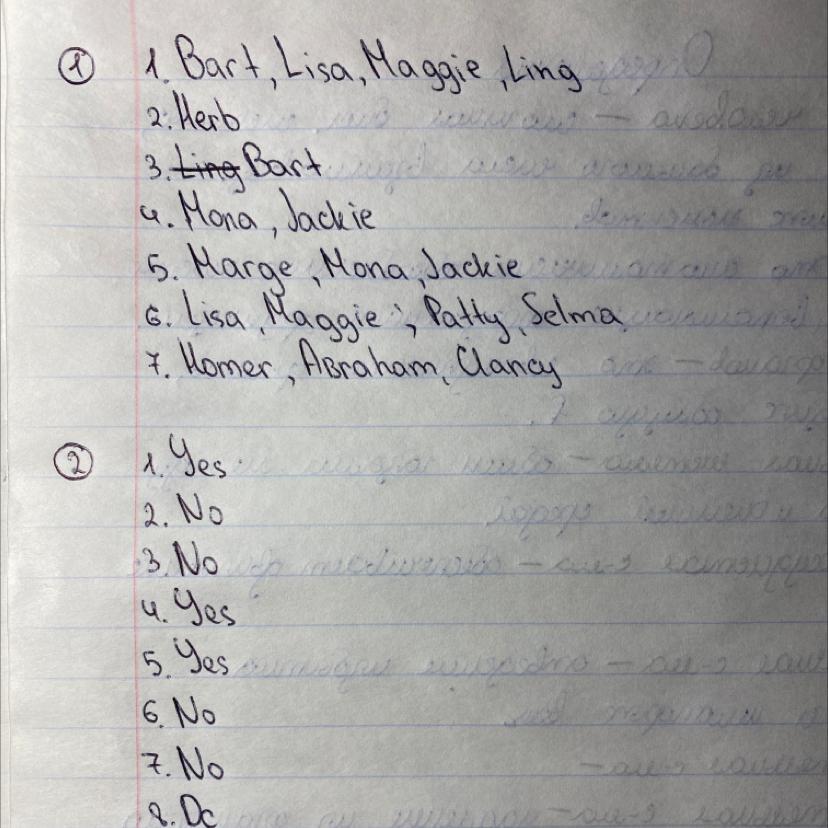 ① 1. Bart, Lisa, Maggie, Ling
2. Herb
3. Ling Bart
4. Mona, Jackie
5. Marge, Mona, Jackie
6. Lisa, Maggie, Patty, Selma
7. Homer, Abraham, Clancy
② 1. Yes
2. No
3. No
4. Yes
5. Yes
6. No
7. No
8.